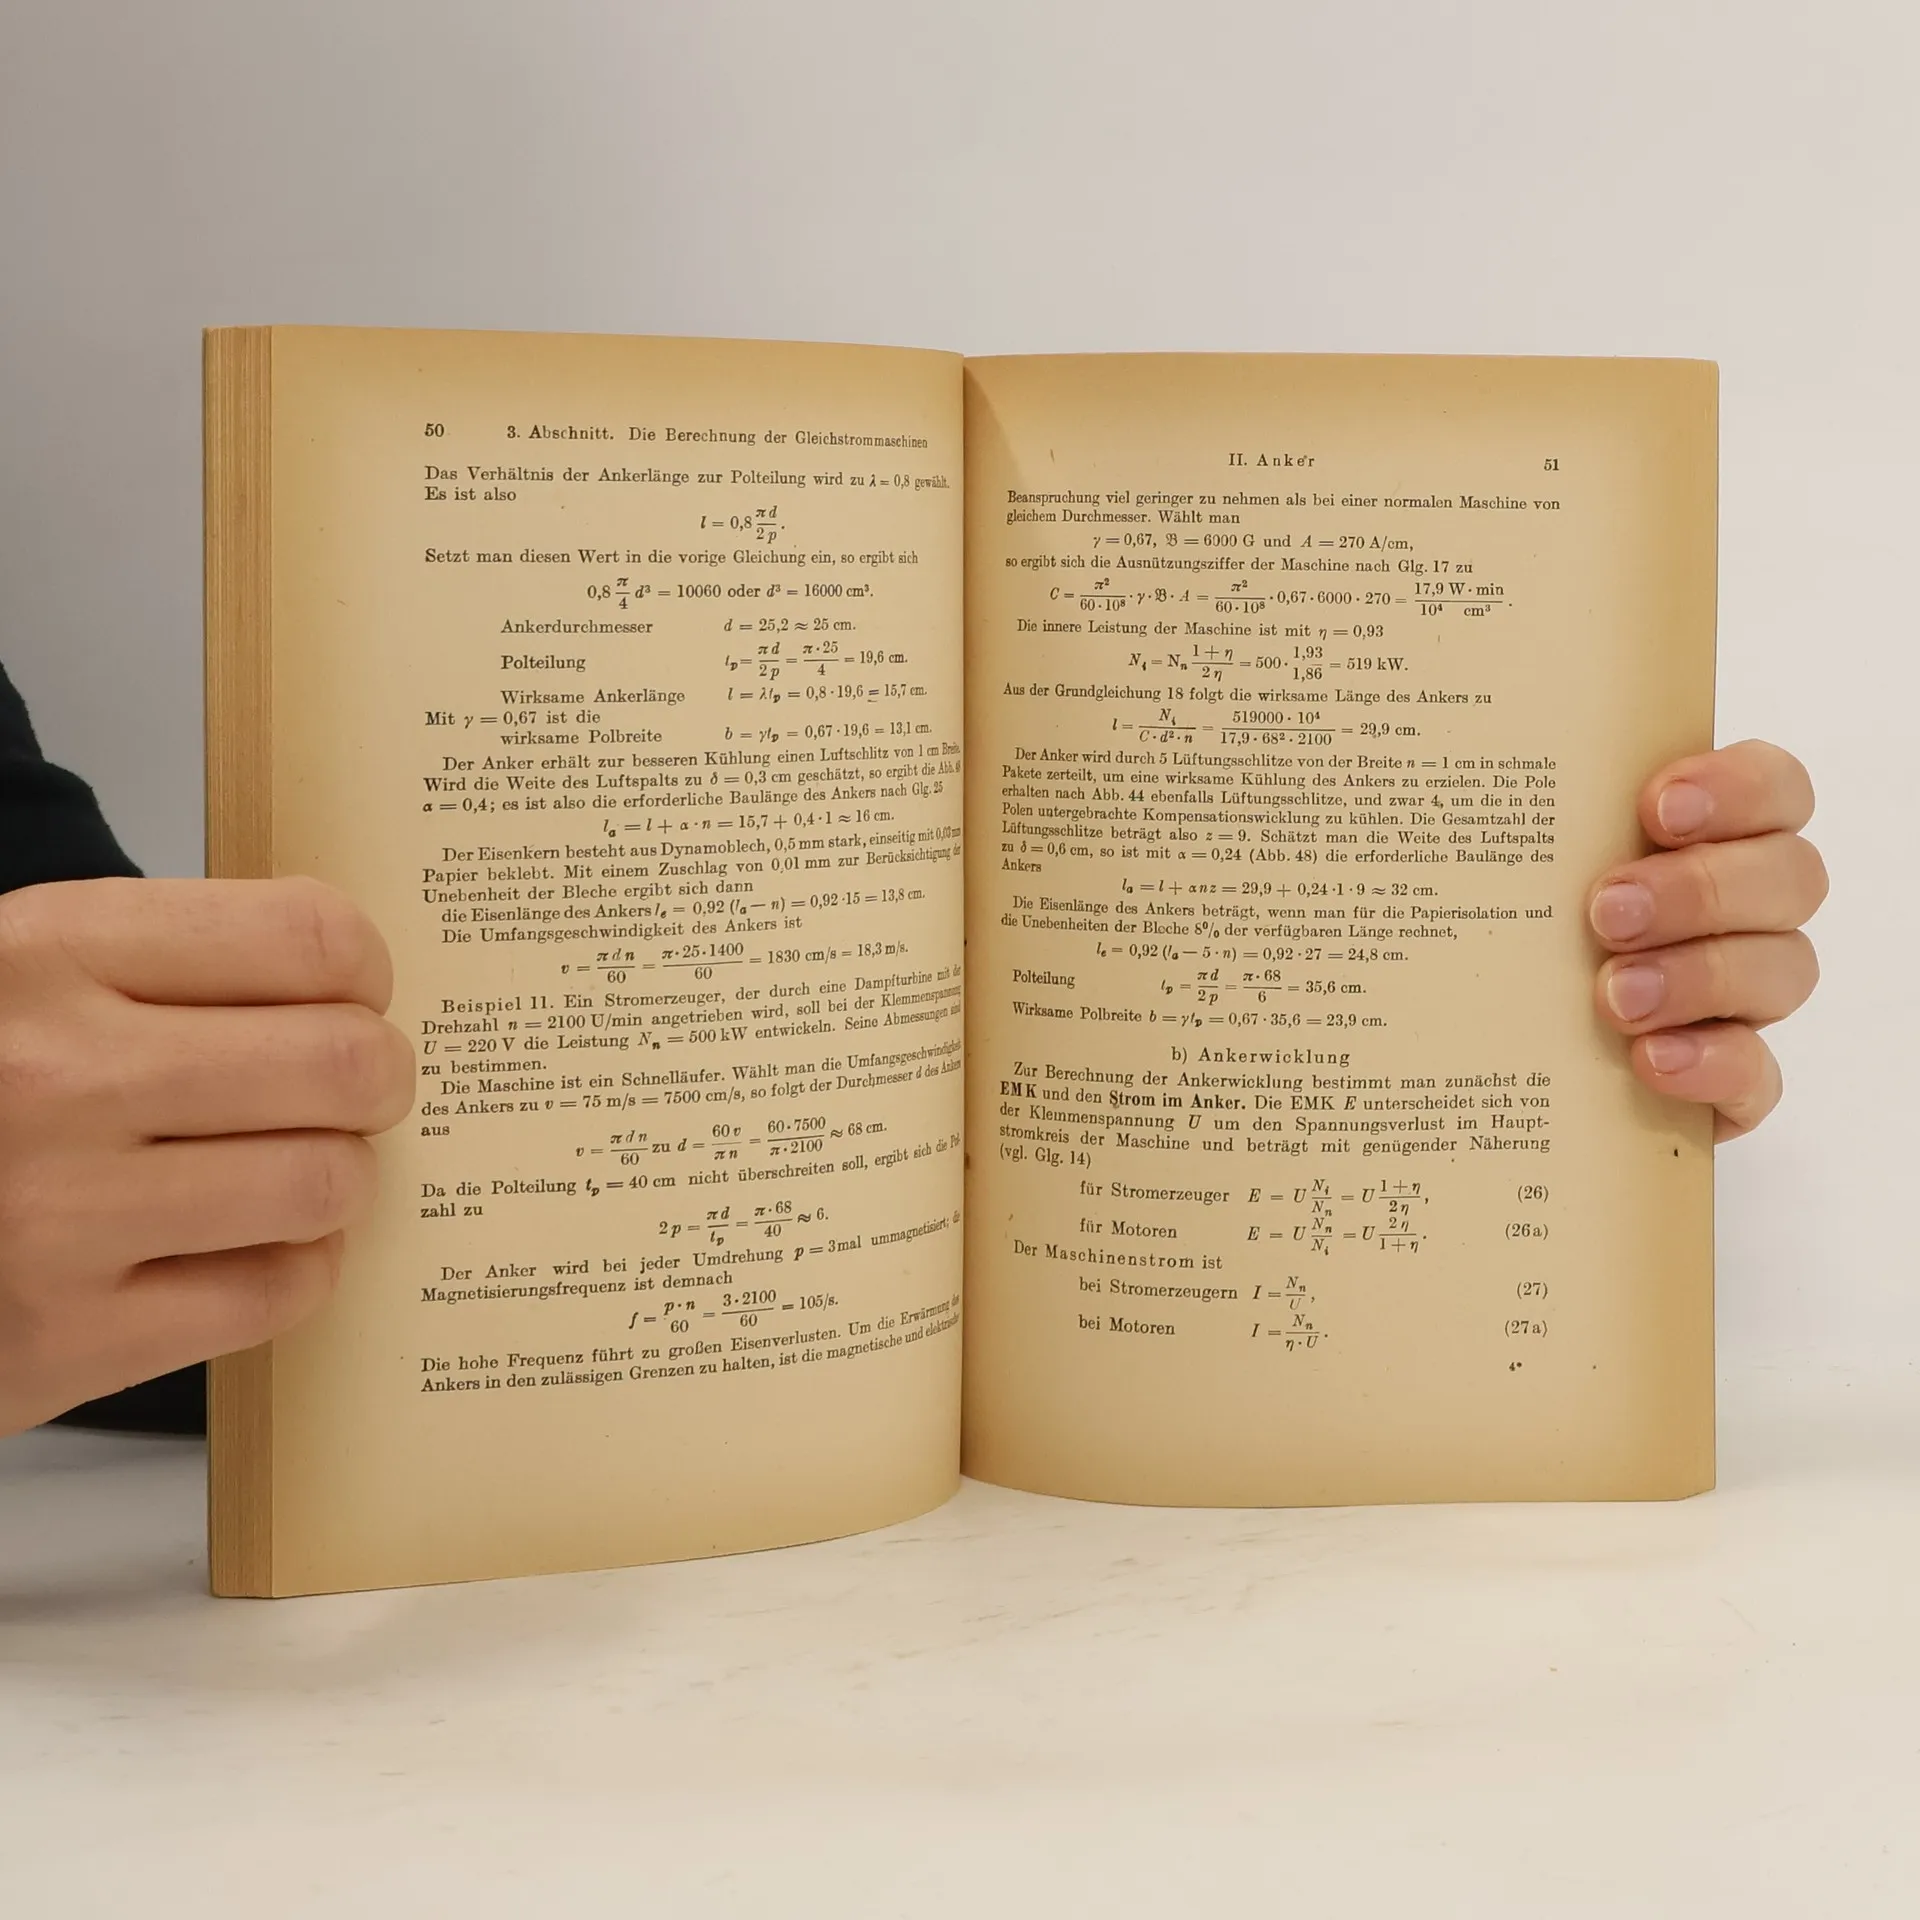 50 3. Abschnitt. Die Berechnung der Gleichstrommaschinen
Das Verhältnis der Ankerlänge zur Polteilung wird zu λ = 0,8 gewählt.
Es ist also
l = 0,8 πd/2p.
Setzt man diesen Wert in die vorige Gleichung ein, so ergibt sich
0,8 π/4 d³ = 10060 oder d³ = 16000 cm³.
Ankerdurchmesser d = 25,2 ≈ 25 cm.
Polteilung tₚ = πd/2p = π·25/4 = 19,6 cm.
Wirksame Ankerlänge l = λtₚ = 0,8·19,6 = 15,7 cm.
Mit γ = 0,67 ist die
wirksame Polbreite b = γtₚ = 0,67·19,6 = 13,1 cm.
Der Anker erhält zur besseren Kühlung einen Luftschlitz von 1 cm Breite.
Wird die Weite des Luftspalts zu δ = 0,3 cm geschätzt, so ergibt die Abb. 48
α = 0,4; es ist also die erforderliche Baulänge des Ankers nach Glg. 25
lₐ = l + α·n = 15,7 + 0,4·1 ≈ 16 cm.
Der Eisenkern besteht aus Dynamoblech, 0,5 mm stark, einseitig mit
Papier beklebt. Mit einem Zuschlag von 0,01 mm zur Berücksichtigung der
Unebenheit der Bleche ergibt sich dann
die Eisenlänge des Ankers lₑ = 0,92 (lₐ — n) = 0,92·15 = 13,8 cm.
Die Umfangsgeschwindigkeit des Ankers ist
v = πdn/60 = π·25·1400/60 = 1830 cm/s = 18,3 m/s.
Beispiel 11. Ein Stromerzeuger, der durch eine Dampfturbine mit der
Drehzahl n = 2100 U/min angetrieben wird, soll bei der Klemmenspannung
U = 220 V die Leistung Nₙ = 500 kW entwickeln. Seine Abmessungen sind
zu bestimmen.
Die Maschine ist ein Schnelläufer. Wählt man die Umfangsgeschwindigkeit
des Ankers zu v = 75 m/s = 7500 cm/s, so folgt der Durchmesser d des Ankers
aus
v = πdn/60 zu d = 60v/πn = 60·7500/π·2100 ≈ 68 cm.
Da die Polteilung tₚ = 40 cm nicht überschreiten soll, ergibt sich die Pol-
zahl zu
2p = πd/tₚ = π·68/40 ≈ 6.
Der Anker wird bei jeder Umdrehung p = 3mal ummagnetisiert; die
Magnetisierungsfrequenz ist demnach
f = p·n/60 = 3·2100/60 = 105/s.
Die hohe Frequenz führt zu großen Eisenverlusten. Um die Erwärmung des
Ankers in den zulässigen Grenzen zu halten, ist die magnetische und elektrische
II. Anker 51
Beanspruchung viel geringer zu nehmen als bei einer normalen Maschine von
gleichem Durchmesser. Wählt man
γ = 0,67, 𝔅 = 6000 G und A = 270 A/cm,
so ergibt sich die Ausnützungsziffer der Maschine nach Glg. 17 zu
C = π²/60·10⁸ · γ·𝔅·A = π²/60·10⁸ · 0,67·6000·270 = 17,9/10⁴ W·min/cm³.
Die innere Leistung der Maschine ist mit η = 0,93
Nᵢ = Nₙ 1+η/2η = 500· 1,93/1,86 = 519 kW.
Aus der Grundgleichung 18 folgt die wirksame Länge des Ankers zu
l = Nᵢ/C·d²·n = 519000·10⁴/17,9·68²·2100 = 29,9 cm.
Der Anker wird durch 5 Lüftungsschlitze von der Breite n = 1 cm in schmale
Pakete zerteilt, um eine wirksame Kühlung des Ankers zu erzielen. Die Pole
erhalten nach Abb. 44 ebenfalls Lüftungsschlitze, und zwar 4, um die in den
Polen untergebrachte Kompensationswicklung zu kühlen. Die Gesamtzahl der
Lüftungsschlitze beträgt also z = 9. Schätzt man die Weite des Luftspalts
zu δ = 0,6 cm, so ist mit α = 0,24 (Abb. 48) die erforderliche Baulänge des
Ankers
lₐ = l + αnz = 29,9 + 0,24·1·9 ≈ 32 cm.
Die Eisenlänge des Ankers beträgt, wenn man für die Papierisolation und
die Unebenheiten der Bleche 8% der verfügbaren Länge rechnet,
lₑ = 0,92 (lₐ — 5·n) = 0,92·27 = 24,8 cm.
Polteilung tₚ = πd/2p = π·68/6 = 35,6 cm.
Wirksame Polbreite b = γtₚ = 0,67·35,6 = 23,9 cm.
b) Ankerwicklung
Zur Berechnung der Ankerwicklung bestimmt man zunächst die
EMK und den Strom im Anker. Die EMK E unterscheidet sich von
der Klemmenspannung U um den Spannungsverlust im Haupt-
stromkreis der Maschine und beträgt mit genügender Näherung
(vgl. Glg. 14)
für Stromerzeuger E = U Nᵢ/Nₙ = U 1+η/2η, (26)
für Motoren E = U Nₙ/Nᵢ = U 2η/1+η. (26a)
Der Maschinenstrom ist
bei Stromerzeugern I = Nₙ/U, (27)
bei Motoren I = Nₙ/η·U. (27a)
4*